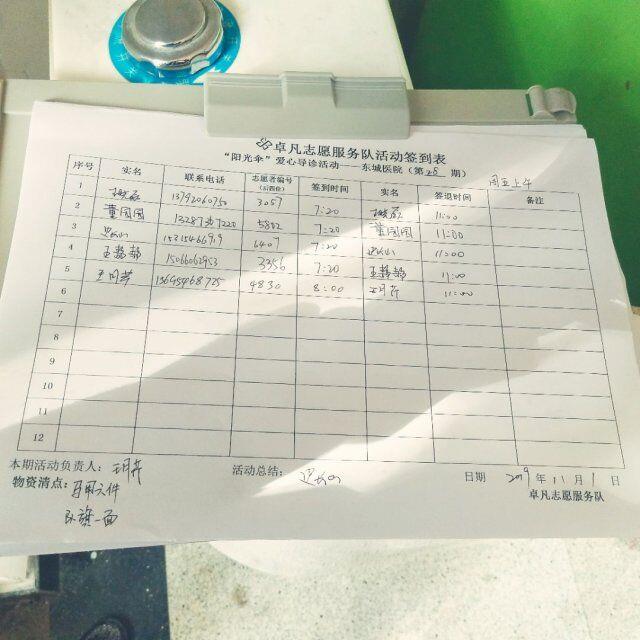 卓凡志愿服务队活动签到表
“阳光伞”爱心导诊活动——东城医院（第28期）
周五上午
序号 实名 联系电话 志愿者编号（后四位） 签到时间 实名 签退时间 备注
1 3057 7:20 11:00
2 董园园 5802 7:20 董园园 11:00
3 6407 7:20 11:00
4 王静静 15066062953 3356 7:20 王静静 11:00
5 13695468725 4830 8:00 11:00
6
7
8
9
10
11
12
本期活动负责人： 活动总结： 日期 2019年11月1日
物资清点：马甲六件 卓凡志愿服务队
队旗一面